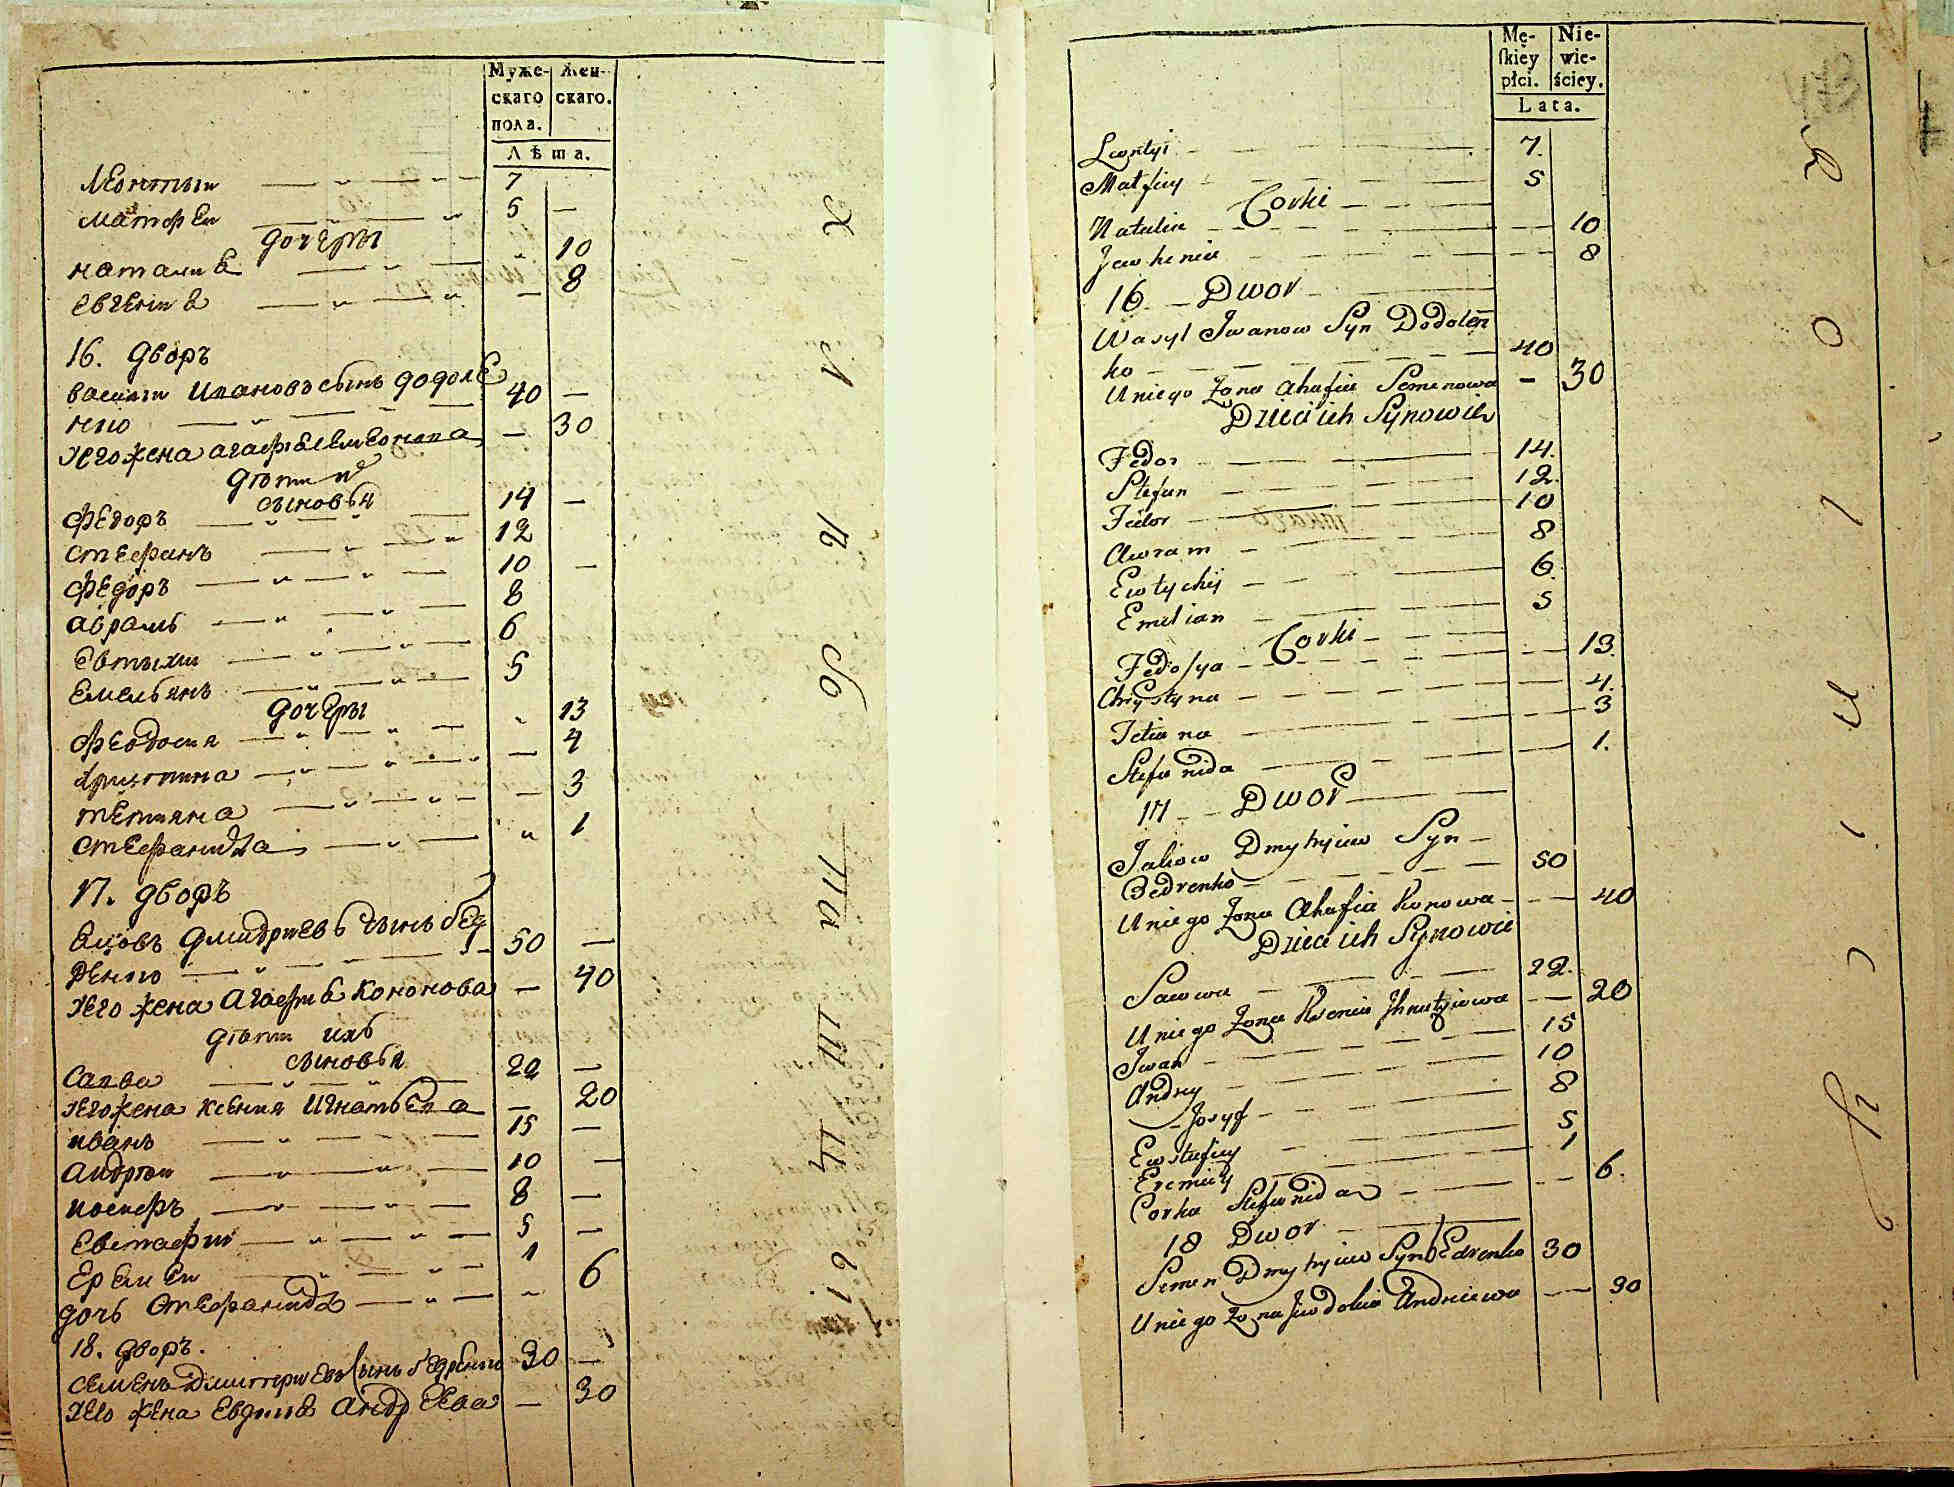 Муже-
скаго
пола.
Жен-
скаго.
Лѣта.
Леонтии 7
Матфеи 5 —
дочери
Наталиѣ 10
Евгениѣ — 8
16. дворъ
Василии Ивановъ сынъ Додоле
нко 40 —
Него жена Агафиѣ Семеонова — 30
дѣти и
сыновья
Федоръ 14 —
Стефанъ 12
Федоръ 10 —
Аврамъ 8
Евтихии 6
Емельянъ 5
дочери
Феодосия 13
Христина — 4
Тетияна — 3
Стефанида 1
17. дворъ
Яковъ Дмитриевъ сынъ Бед
ренко 50 —
Него жена Агафиѣ Кононова — 40
дѣти ихъ
сыновья
Савва 22 —
Него жена Ксения Игнатьева — 20
Иванъ 15 —
Андреи 10 —
Иосифъ 8 —
Евстафии 5 —
Еремеи 1
дочь Стефанида 6
18. дворъ.
Семенъ Дмитриевъ сынъ Бедренко 30 —
Него жена Евдокиѣ Андреева — 30
Mę-
skiey
płci.
Nie-
wie-
ściey.
Lata.
Lwontyi 7.
Matfiey 5
Corki
Natalia 10
Jawhenia 8
16 Dwor
Wasyl Iwanow Syn Dodoleń
ko 40
U niego Żona Ahafia Semenowa — 30
Dzieci ich Synowie
Fedor 14.
Stefan 12.
Fedor 10
Awram 8
Ewtychij 6.
Emilian 5
Corki
Fedosya 13.
Chrystyna 4.
Tetiana 3
Stefanida 1.
17 Dwor
Jakow Dmytryiew Syn
Bedrenko 50
U niego Żona Ahafia Konowa 40
Dzieci ich Synowie
Sawwa 22.
U niego Żona Ksenia Ihnatjewa — 20
Iwan 15
Andrey 10
Josyf 8
Ewstafiey 5
Eremiey 1
Corka Stefanida 6.
18 Dwor
Semen Dmytryiew Syn Bedrenko 30
U niego Żona Jewdokia Andriewa — 30